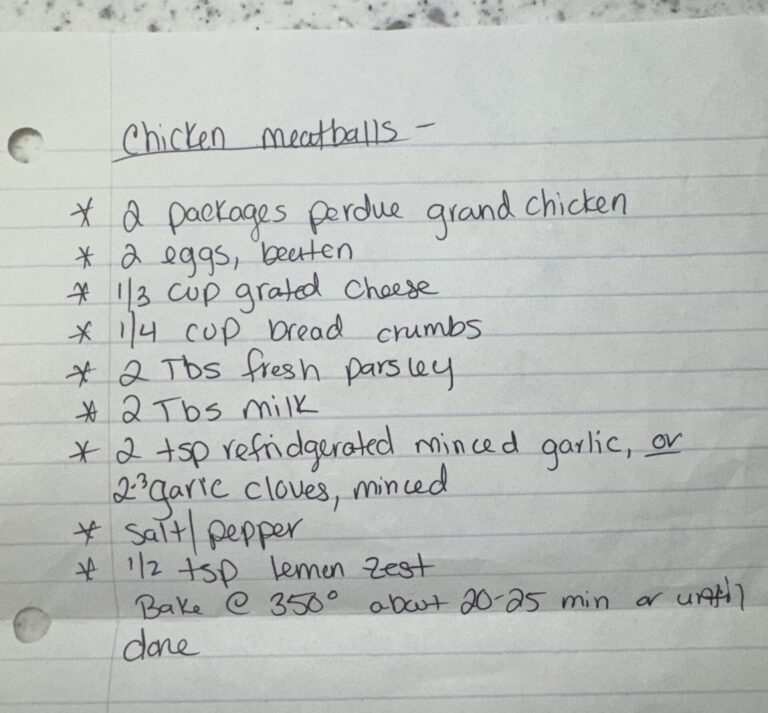 Chicken meatballs -
* 2 packages perdue grand chicken
* 2 eggs, beaten
* 1/3 cup grated cheese
* 1/4 cup bread crumbs
* 2 Tbs fresh parsley
* 2 Tbs milk
* 2 tsp refridgerated minced garlic, or
2-3 garic cloves, minced
* salt/pepper
* 1/2 tsp lemen zest
Bake @ 350° about 20-25 min or until
done